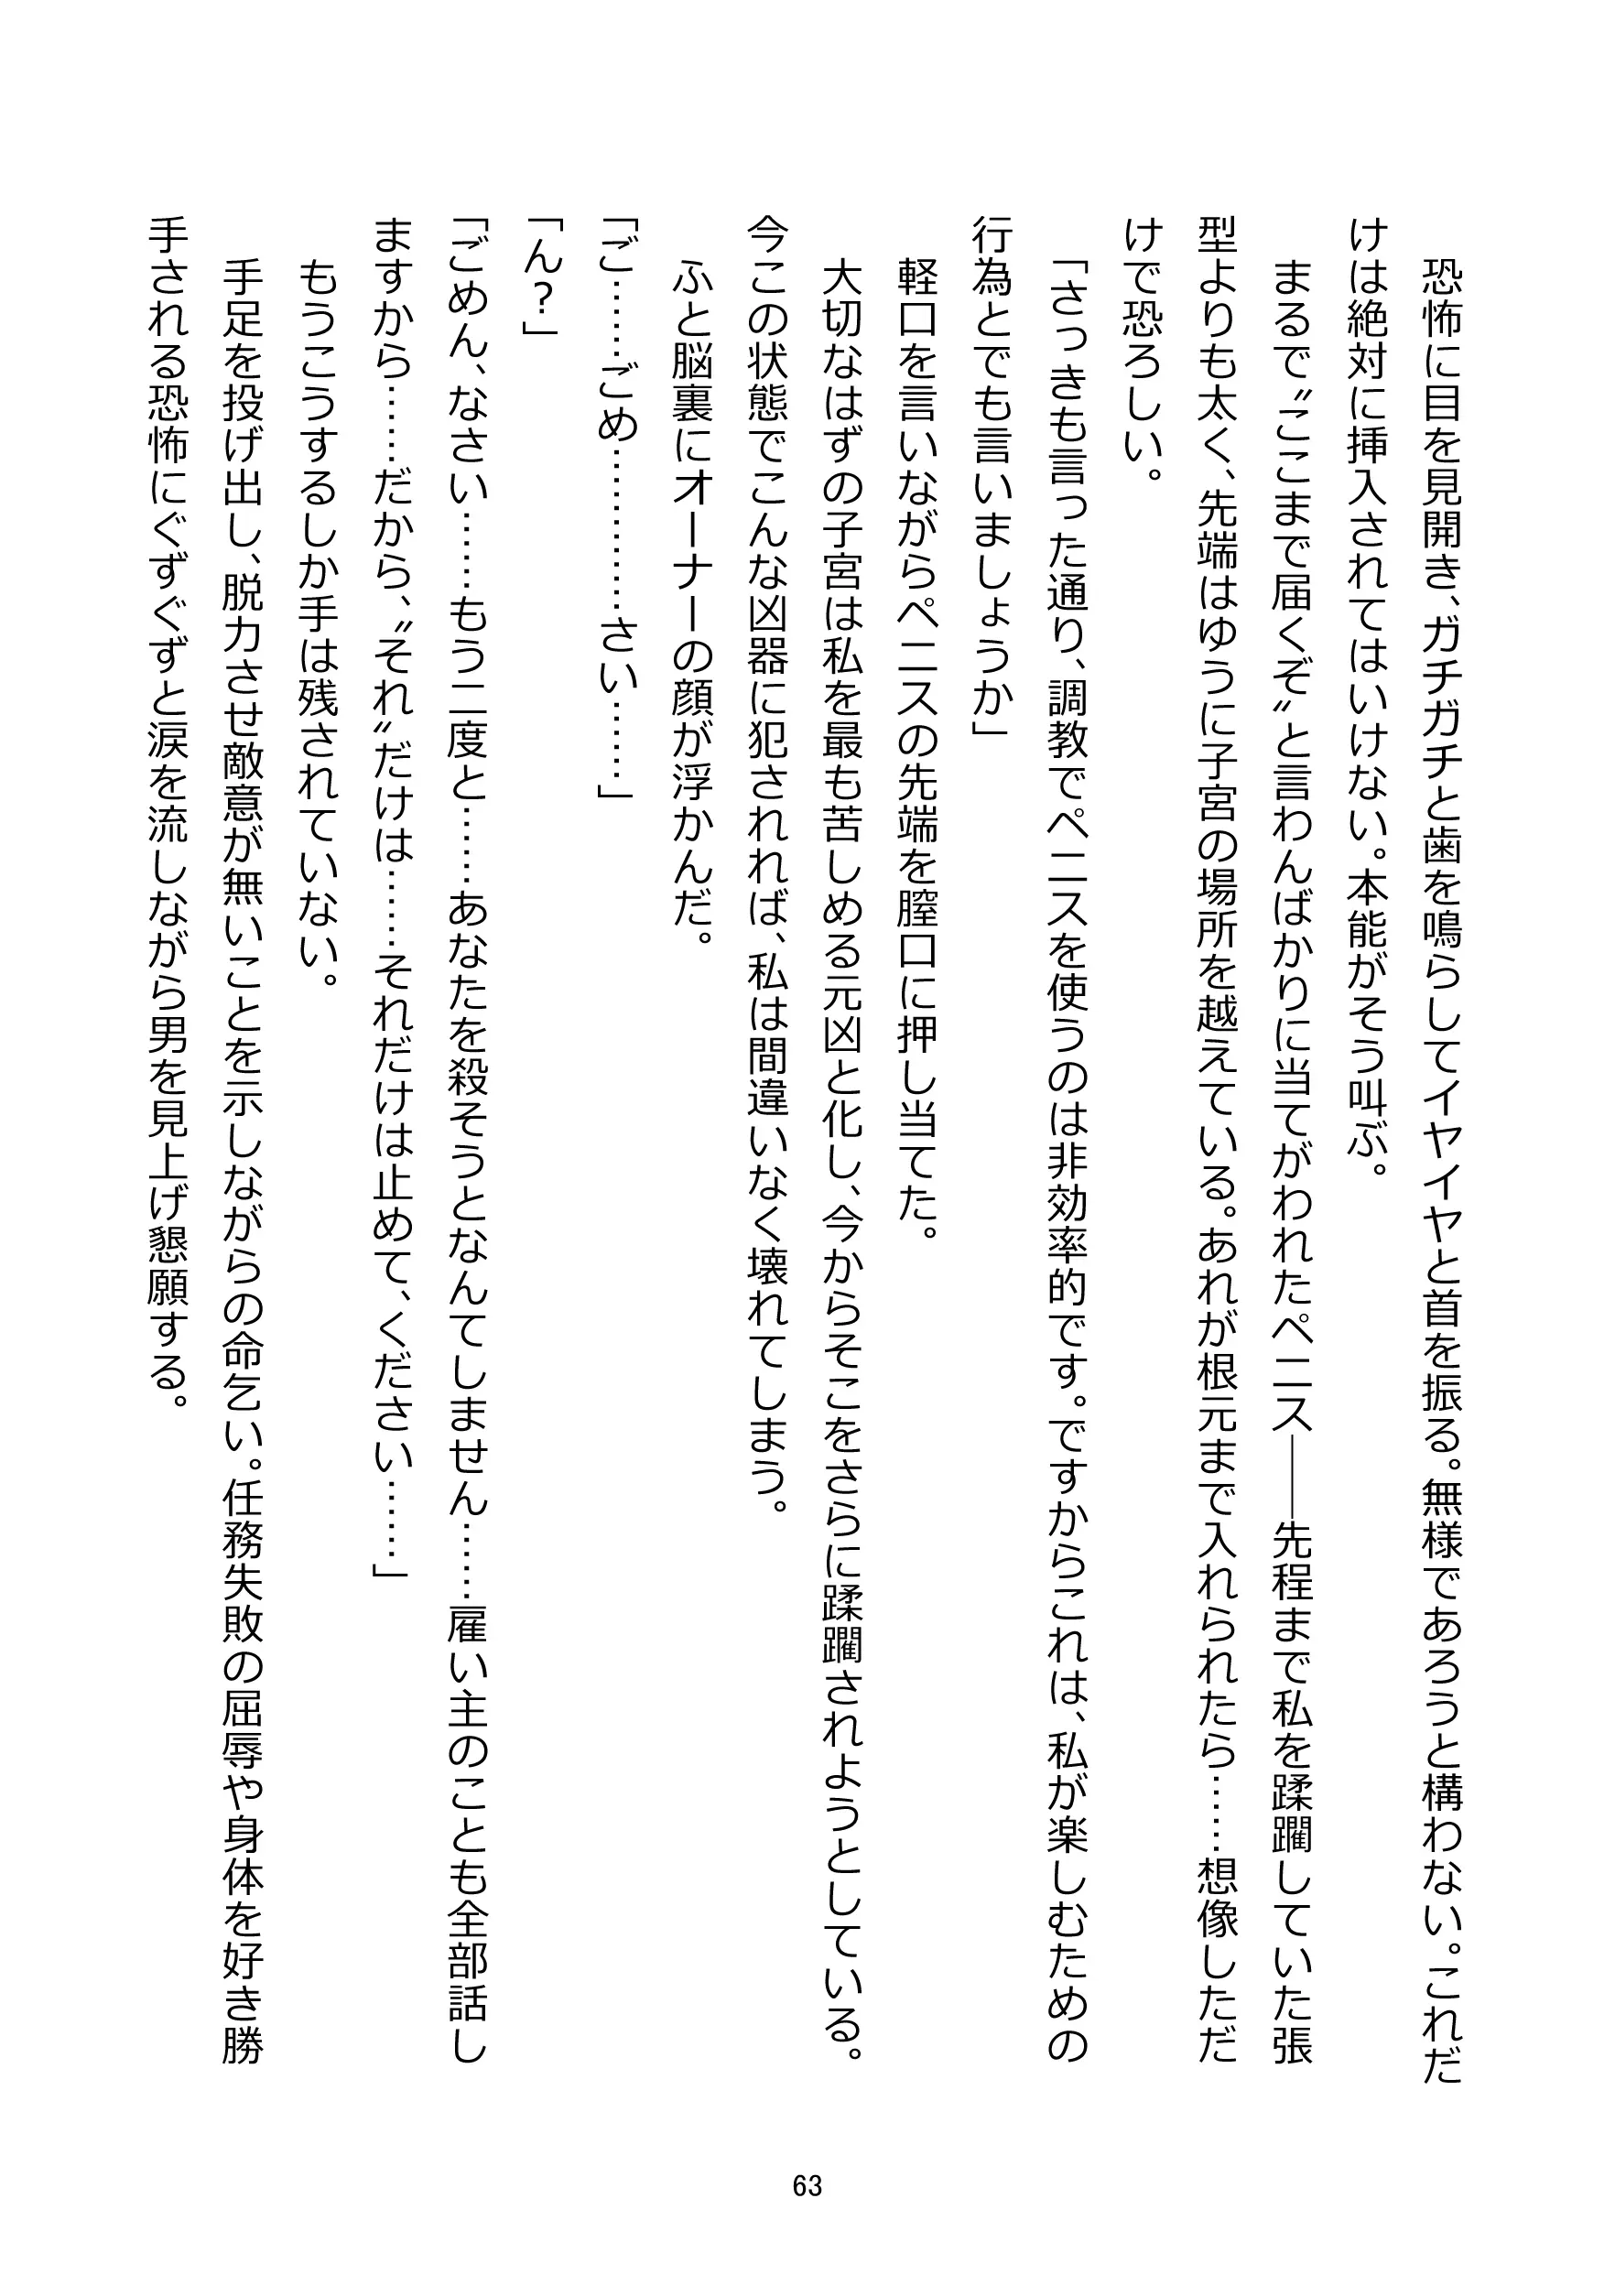 恐怖に目を見開き、ガチガチと歯を鳴らしてイヤイヤと首を振る。無様であろうと構わない。これだ
けは絶対に挿入されてはいけない。本能がそう叫ぶ。
まるで〝ここまで届くぞ〟と言わんばかりに当てがわれたペニス――先程まで私を蹂躙していた張
型よりも太く、先端はゆうに子宮の場所を越えている。あれが根元まで入れられたら……想像しただ
けで恐ろしい。
「さっきも言った通り、調教でペニスを使うのは非効率的です。ですからこれは、私が楽しむための
行為とでも言いましょうか」
軽口を言いながらペニスの先端を膣口に押し当てた。
大切なはずの子宮は私を最も苦しめる元凶と化し、今からそこをさらに蹂躙されようとしている。
今この状態でこんな凶器に犯されれば、私は間違いなく壊れてしまう。
ふと脳裏にオーナーの顔が浮かんだ。
「ご……ごめ…………さい……」
「ん?」
「ごめん、なさい……もう二度と……あなたを殺そうとなんてしません……雇い主のことも全部話し
ますから……だから、〝それ〟だけは……それだけは止めて、ください……」
もうこうするしか手は残されていない。
手足を投げ出し、脱力させ敵意が無いことを示しながらの命乞い。任務失敗の屈辱や身体を好き勝
手される恐怖にぐずぐずと涙を流しながら男を見上げ懇願する。
63